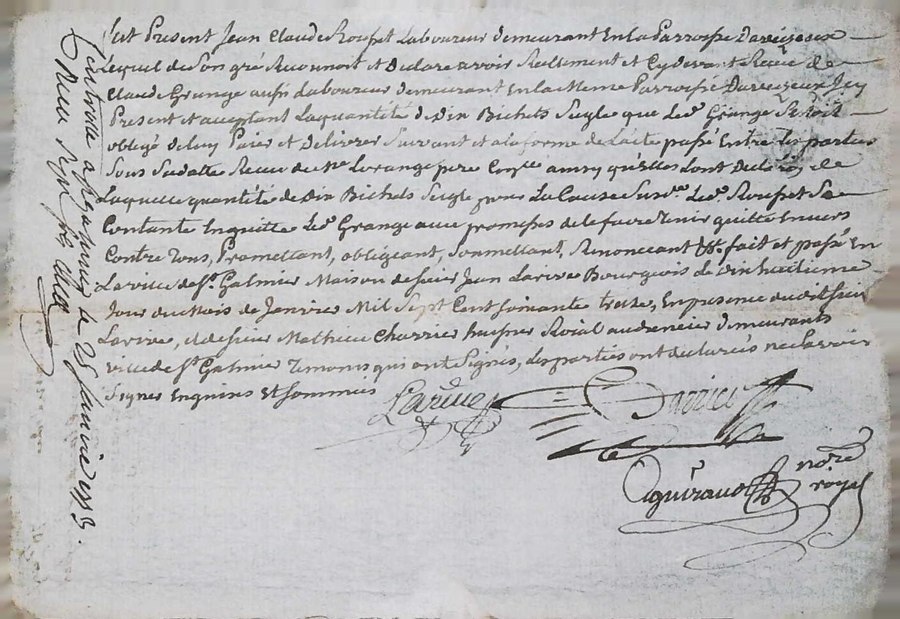 fut Present Jean Claude Rouset Laboureur demeurant En la Parroisse Daveizeaux
Lequel de Son gré Reconnoit et Declare avoir Reelement et Cydevant Receu de
Claude Grange aussi Laboureur demeurant En la Meme Parroisse Daveizeux Icy
Present et acceptant La quantité de Dix Bichets Seigle que Led. Grange Sestoit
obligé de luy Paier et Delivrer Suivant et a la forme de Lacte passé Entre les parties
Sous Sa datte Receu de Me
Laquelle quantité de Dix Bichets Seigle pour La Cause Susd. Led. Rouset Se
Contante Enquitte Led. Grange avec promesse de le faire tenir quitte Envers
Contre tous, Promettant, obligeant, Soumettant, Renonceant &c. fait et passé En
La ville de St. Galmier Maison de sieur Jean Larive Bourgeois Le vin huitieme
Jour du Mois de Janvier Mil Sept Cent soixante treize, En presence dudit sieur
Larive, et de sieur Mathieu Charrier huissier Roial audiancier demeurants
ville de St. Galmier temoins qui ont Signés, Les parties ont declarées ne Savoir
Signer Enquises Et Sommées
Larive
notre
royal